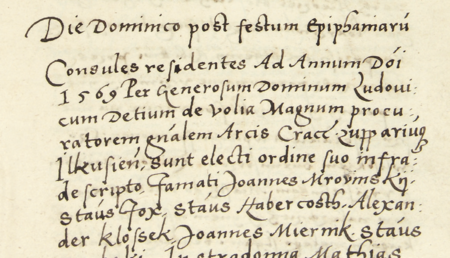 Die Dominico post festum Epiphaniarũ
Consules residentes Ad Annum Dói
1569 Per Generosum Dominum Ludovi:
cum Detium de Volia Magnum procu:
ratorem gnãlem Arcis Cracc Zupparium
Ilkusien: sunt electi ordine suo infra:
de scripto Famati Joannes Mrovinskij
Staũs Fox. Staũs Habercosth. Alexan:
der klossek Joannes Miernik. Staũs
In Stradomia Mathias